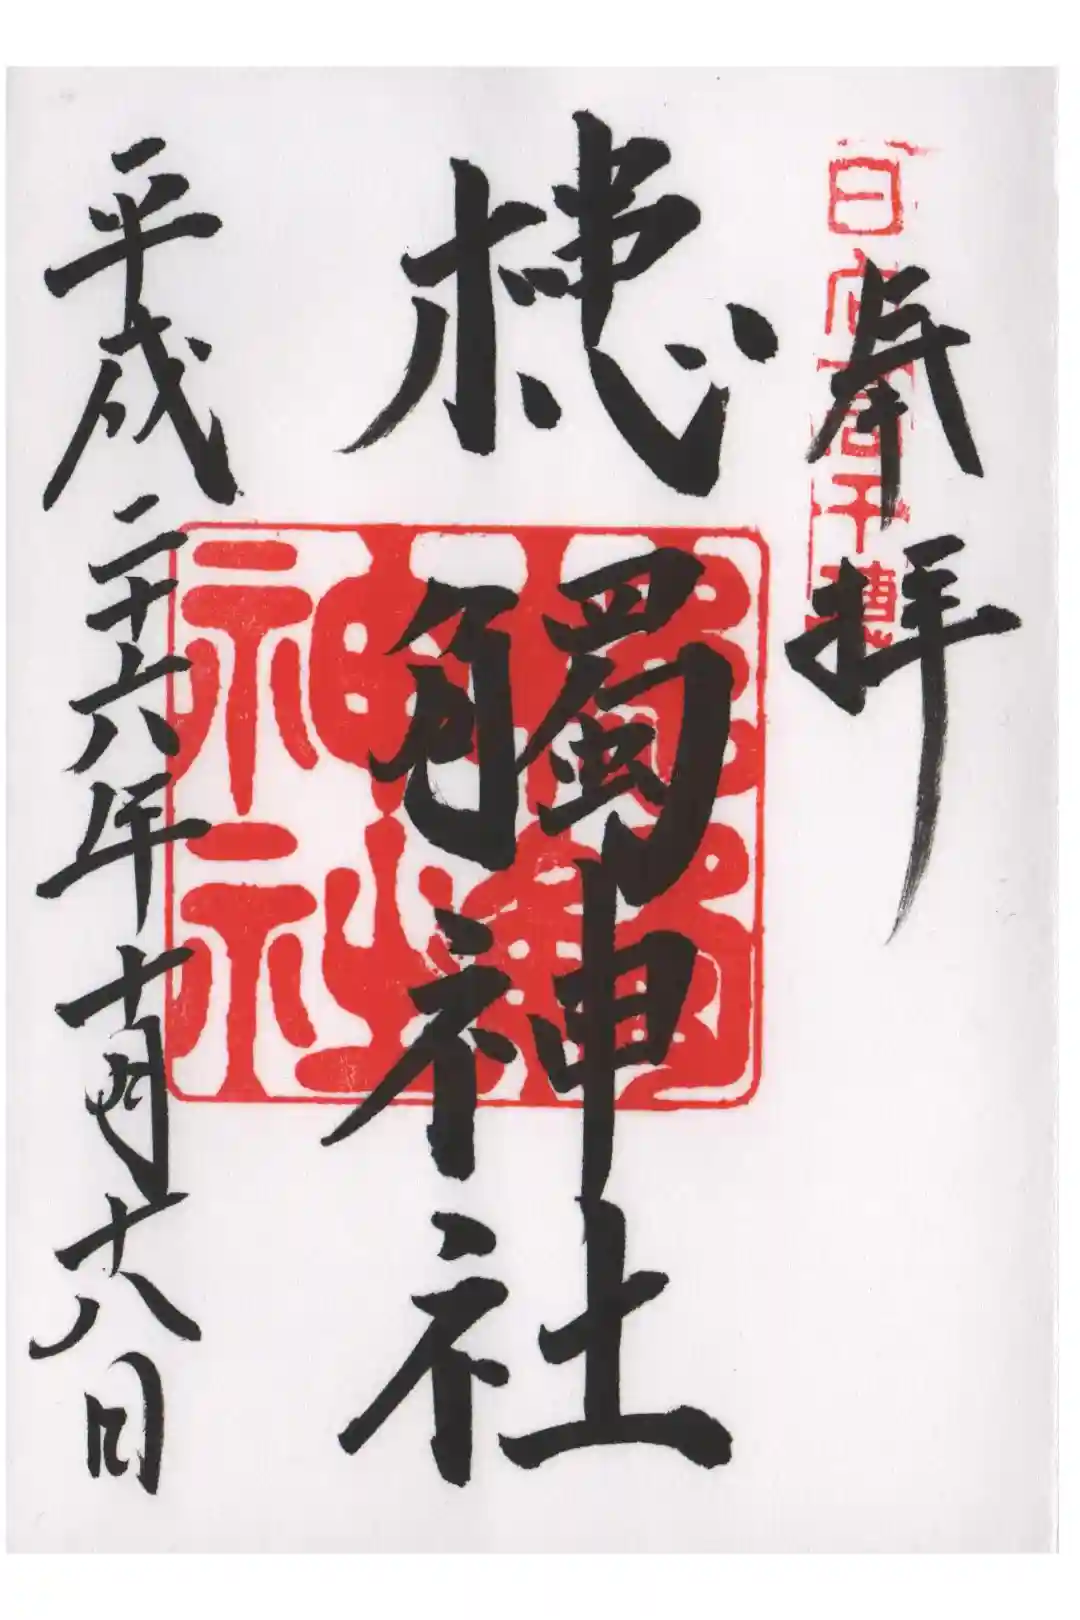 日向高千穂
奉拝
槵觸神社
槵觸
神社
平成二十六年十月十八日